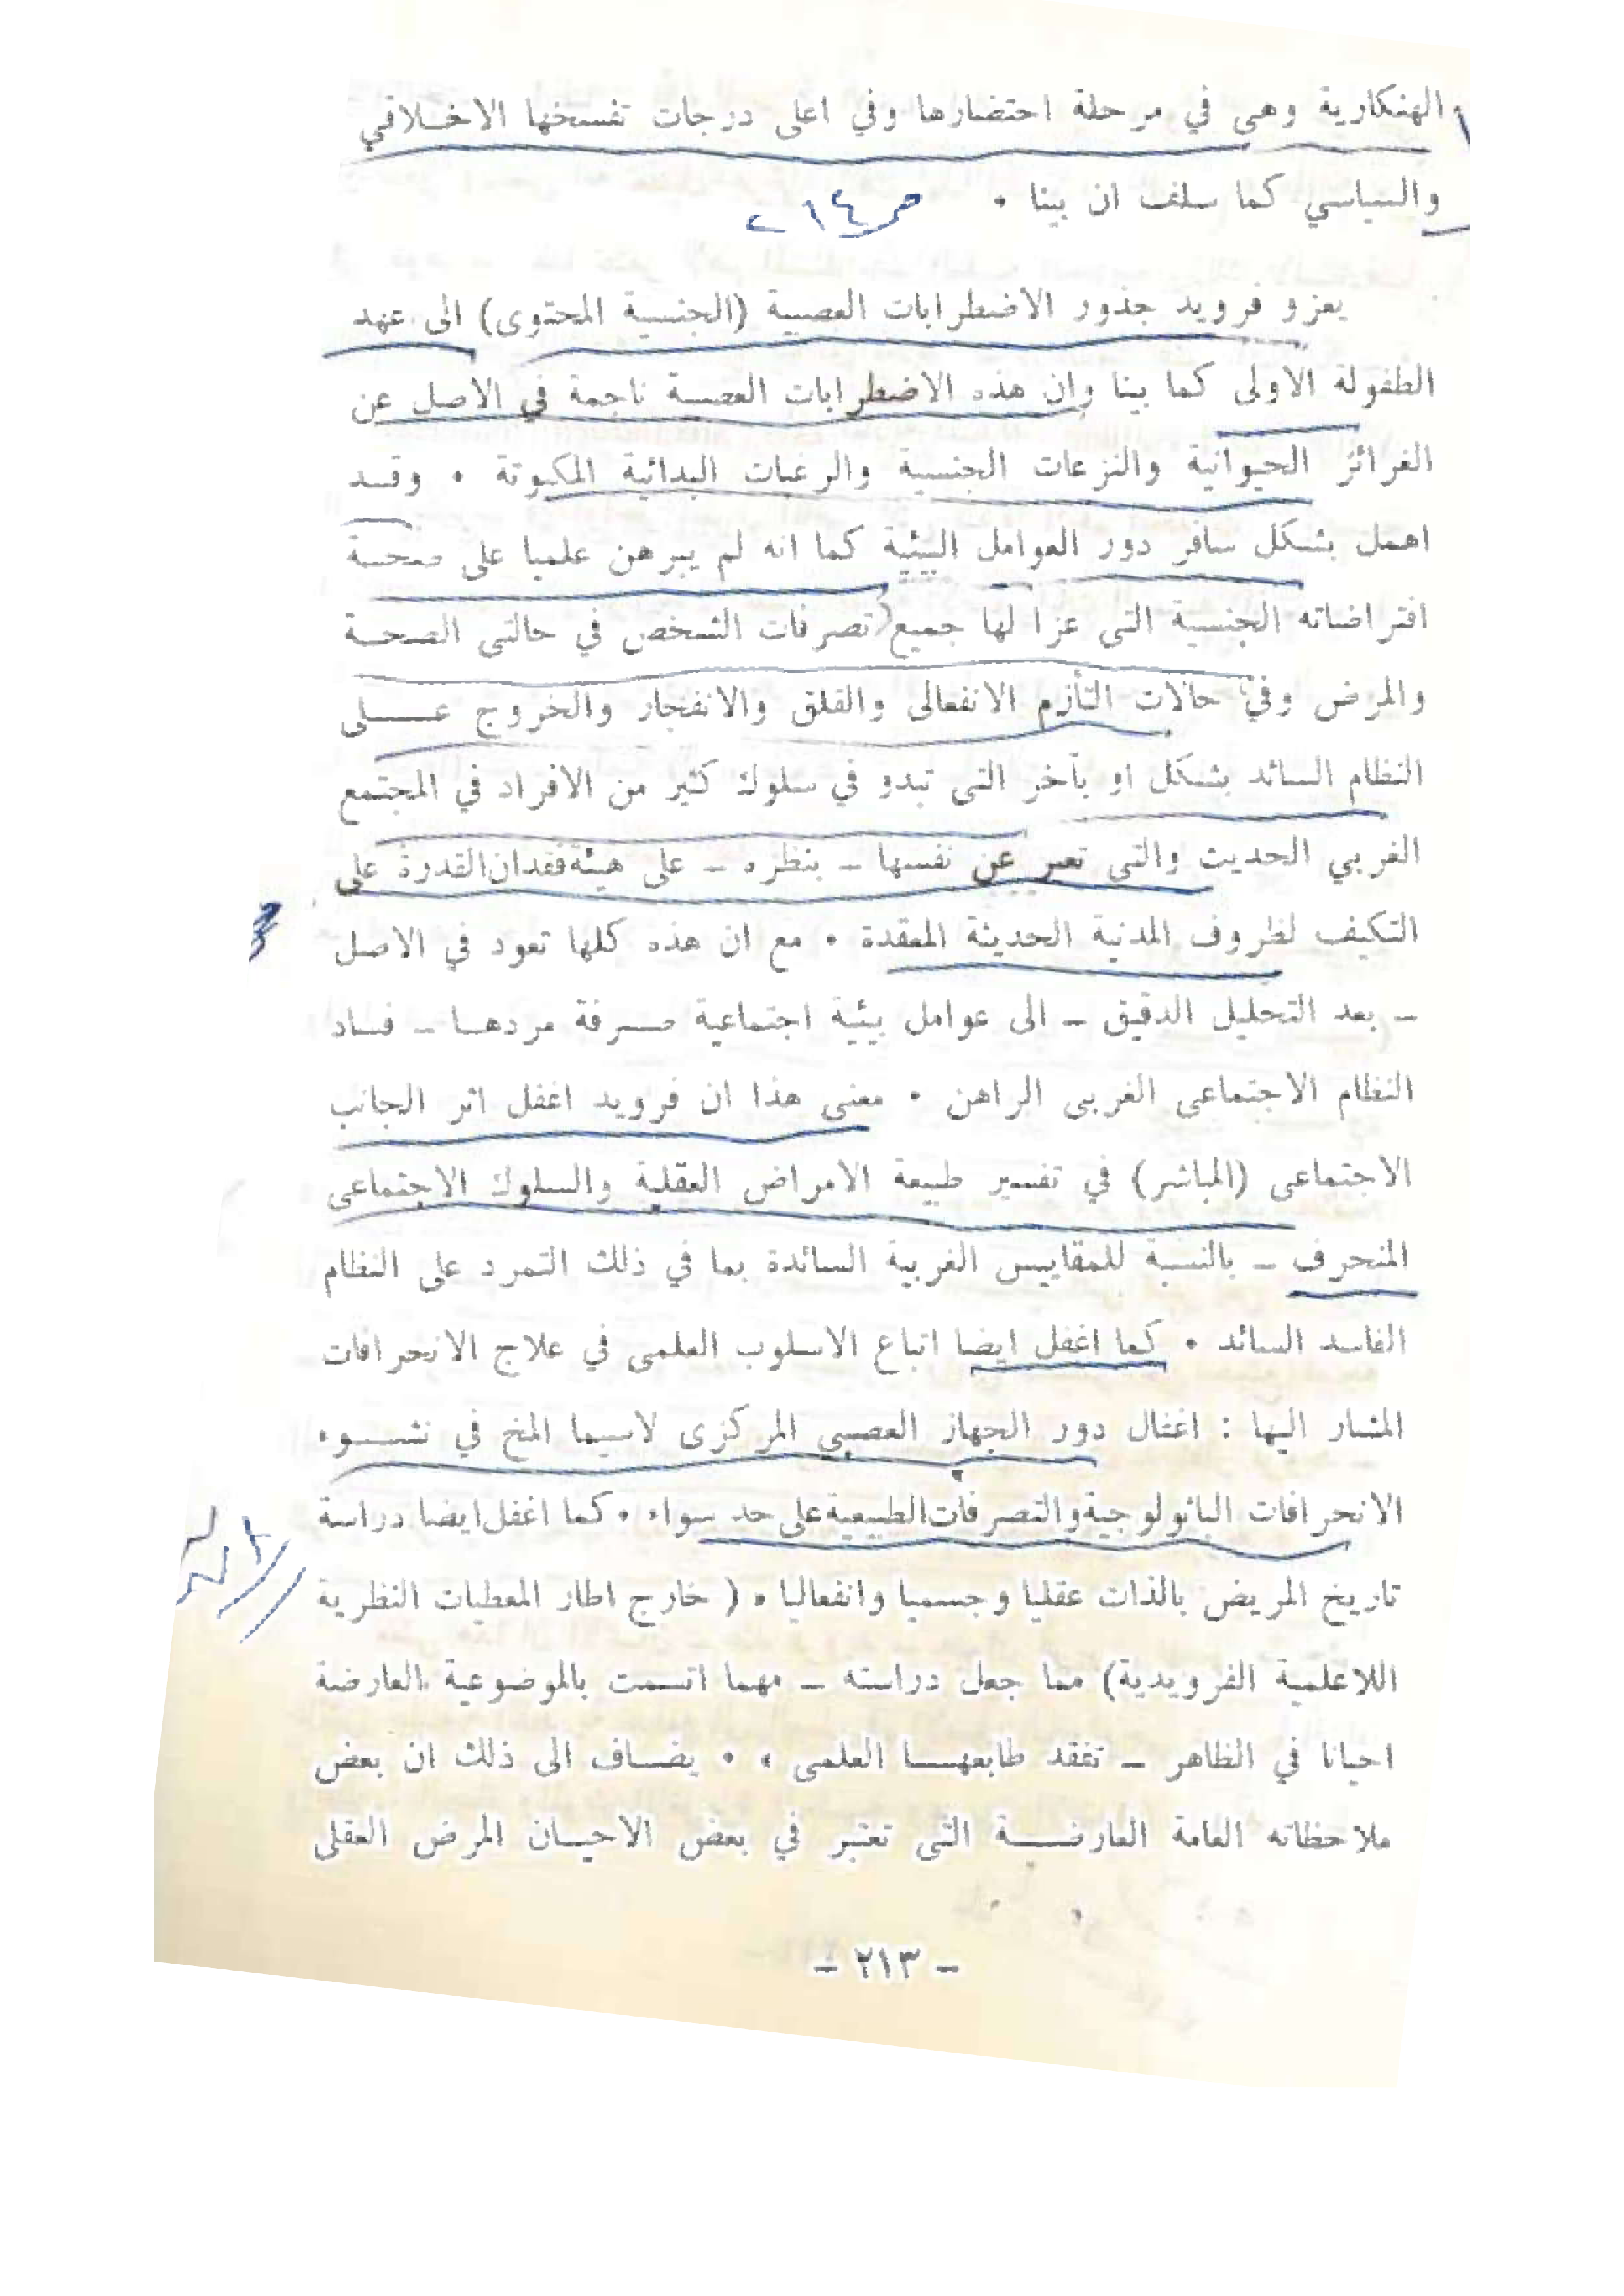 الهنكارية وهي في مرحلة احتضارها وفي اعلى درجات تفسخها الاخـلاقي
والسياسي كما سلف ان بينا ٠
يعزو فرويد جذور الاضطرابات العصبية (الجنسية المحتوى) الى عهد
الطفولة الاولى كما بينا وان هذه الاضطرابات العصبية ناجمة في الاصل عن
الغرائز الحيوانية والنزعات الجنسية والرغبات البدائية المكبوتة ٠ وقـد
اهمل بشكل سافر دور العوامل البيئية كما انه لم يبرهن علميا على صحـة
افتراضاته الجنسية التي عزا لها جميع تصرفات الشخص في حالتي الصحـة
والمرض وفي حالات التأزم الانفعالى والقلق والانفجار والخروج عـــلى
النظام السائد بشكل او بآخر التى تبدو في سلوك كثير من الافراد في المجتمع
الغربي الحديث والتى تعبر عن نفسها ـ بنظره ـ على هيئة فقدان القدرة على
التكيف لظروف المدنية الحديثة المعقدة ٠ مع ان هذه كلها تعود في الاصل
ـ بعد التحليل الدقيق ـ الى عوامل بيئية اجتماعية صـرفة مردهـا ـ فساد
النظام الاجتماعى الغربى الراهن ٠ معنى هذا ان فرويد اغفل اثر الجانب
الاجتماعى (المباشر) في تفسير طبيعة الامراض العقلية والسلوك الاجتماعى
المنحرف ـ بالنسبة للمقاييس الغربية السائدة بما في ذلك التمرد على النظام
الفاسد السائد ٠ كما اغفل ايضا اتباع الاسلوب العلمى في علاج الانحرافات
المشار اليها : اغفال دور الجهاز العصبي المركزى لاسيما المخ في نشـــوء
الانحرافات الباثولوجية والتصرفات الطبيعية على حد سواء ٠ كما اغفل ايضا دراسة
تاريخ المريض بالذات عقليا وجسميا وانفعاليا ٠ ( خارج اطار المعطيات النظرية
اللاعلمية الفرويدية) مما جعل دراسته ـ مهما اتسمت بالموضوعية العارضة
احيانا في الظاهر ـ تفقد طابعهــا العلمى ٠ ٠ يضـاف الى ذلك ان بعض
ملاحظاته العامة العارضـــة التى تعتبر في بعض الاحيـان المرض العقلى
ـ ٢١٣ ـ